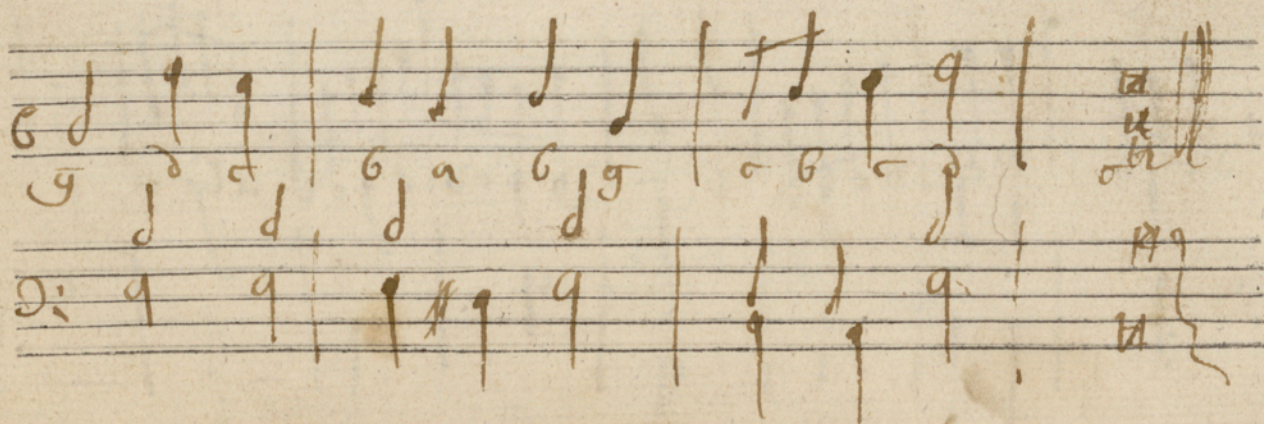 g d c b a b g c b c d